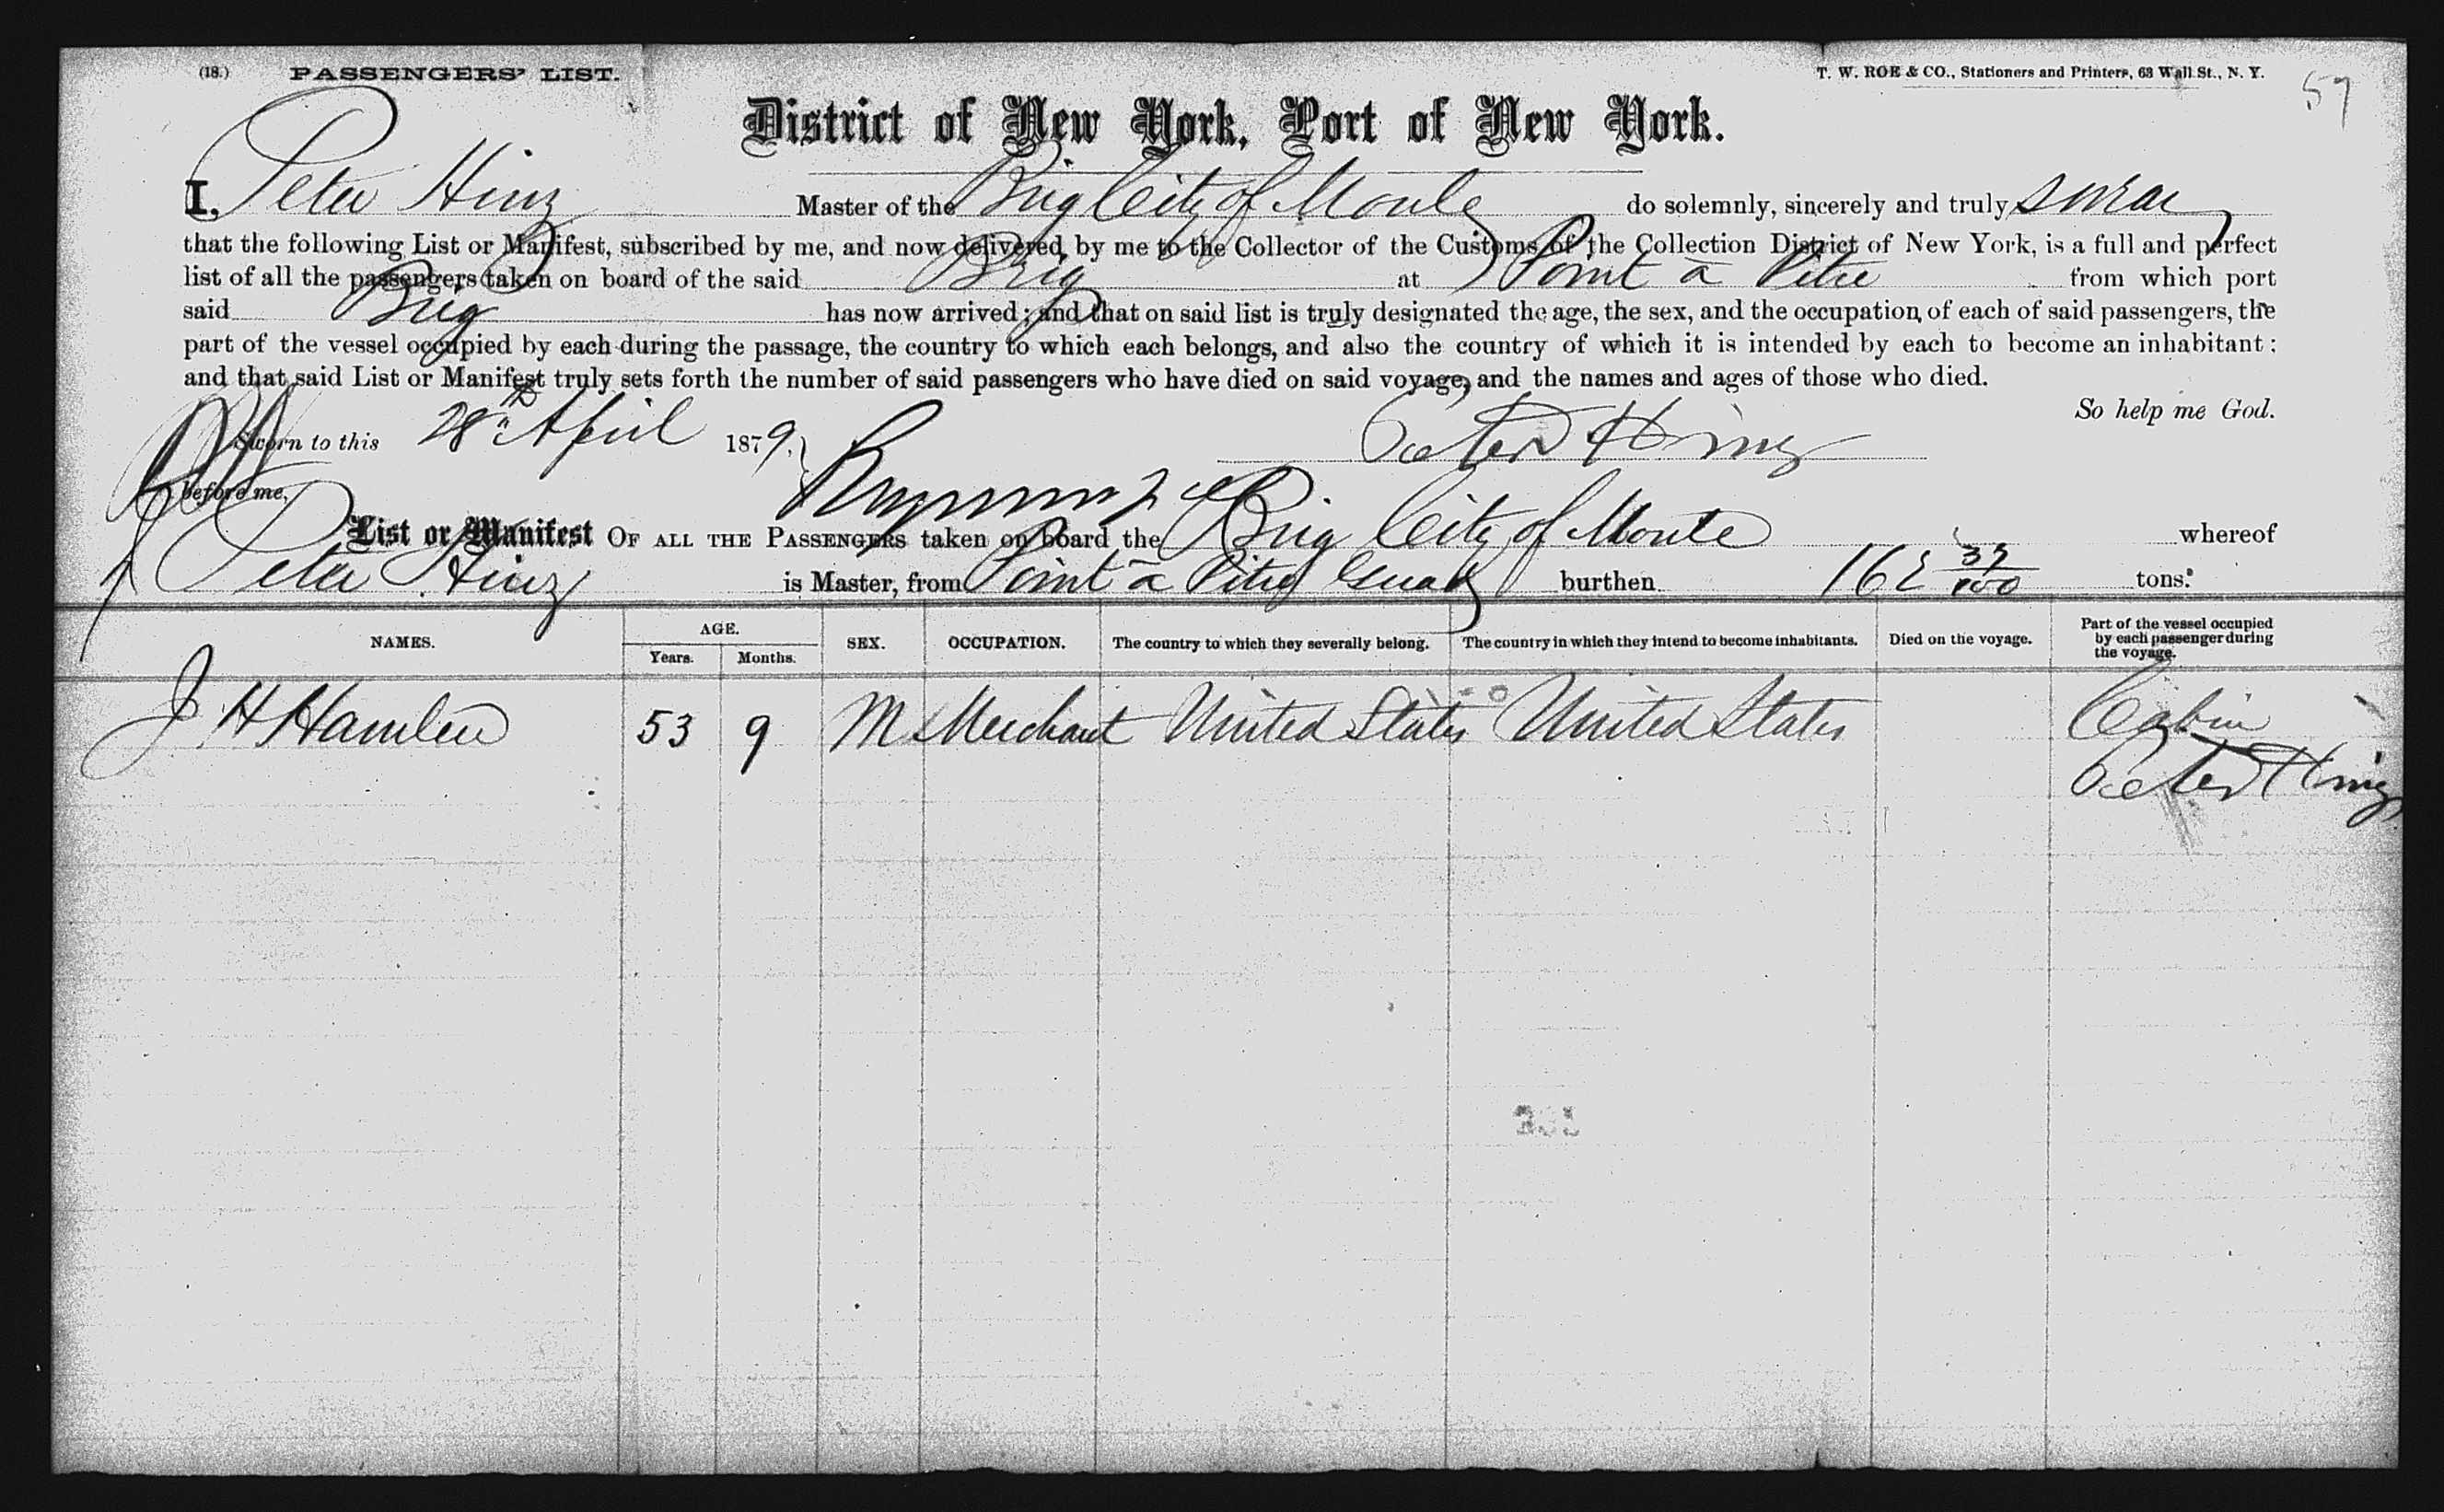 (18.) PASSENGERS' LIST. T. W. ROE & CO., Stationers and Printers, 63 Wall St., N. Y. 57
District of New York, Port of New York.
I, Peter Hinz Master of the Brig City of Moule do solemnly, sincerely and truly swear
that the following List or Manifest, subscribed by me, and now delivered by me to the Collector of the Customs of the Collection District of New York, is a full and perfect
list of all the passengers taken on board of the said Brig at Point a Pitre from which port
said Brig has now arrived; and that on said list is truly designated the age, the sex, and the occupation of each of said passengers, the
part of the vessel occupied by each during the passage, the country to which each belongs, and also the country of which it is intended by each to become an inhabitant;
and that said List or Manifest truly sets forth the number of said passengers who have died on said voyage, and the names and ages of those who died.
So help me God.
Sworn to this 28th April 1879. Peter Hinz
before me,
List or Manifest OF ALL THE PASSENGERS taken on board the Brig City of Moule whereof
Peter Hinz is Master, from Point a Pitre Guad burthen 37/100 tons.
NAMES. AGE. SEX. OCCUPATION. The country to which they severally belong. The country in which they intend to become inhabitants. Died on the voyage. Part of the vessel occupied by each passenger during the voyage.
Years. Months.
J H Hamlen 53 9 M Merchant United States United States Cabin
Peter Hinz